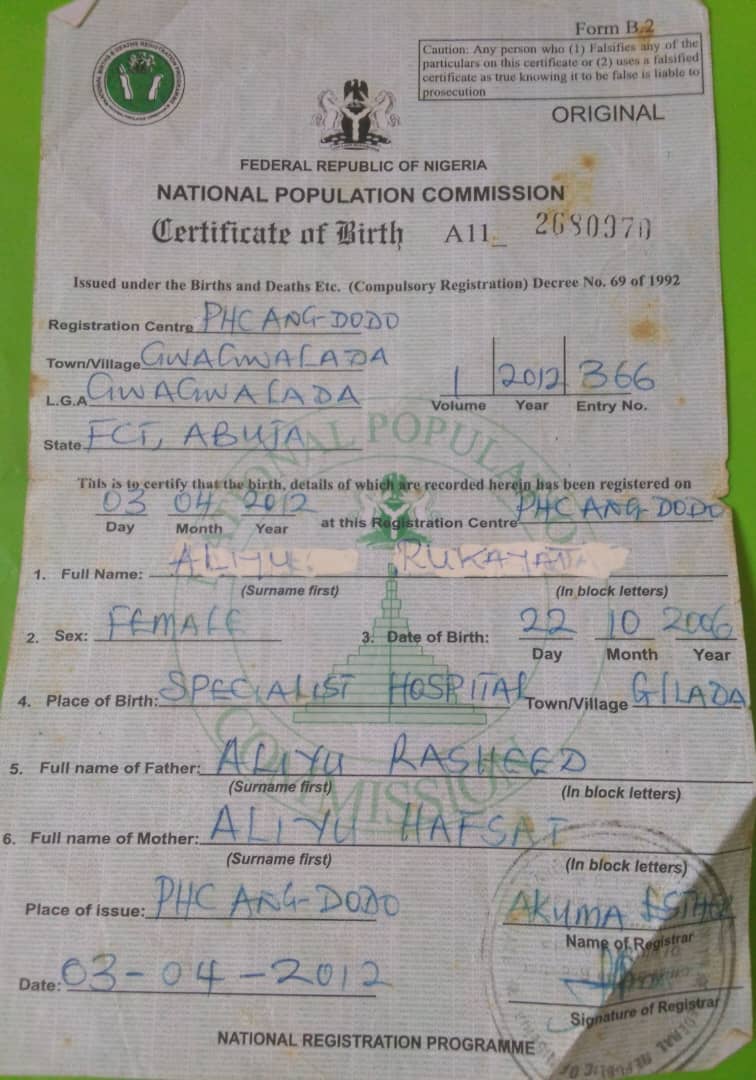 Form B.2
Caution: Any person who (1) Falsifies any of the
particulars on this certificate or (2) uses a falsified
certificate as true knowing it to be false is liable to
prosecution
ORIGINAL
FEDERAL REPUBLIC OF NIGERIA
NATIONAL POPULATION COMMISSION
Certificate of Birth A11_ 2680970
Issued under the Births and Deaths Etc. (Compulsory Registration) Decree No. 69 of 1992
Registration Centre PHC ANG-DODO
Town/Village GWAGWALADA
L.G.A GWAGWALADA
1 2012 366
Volume Year Entry No.
State FCT, ABUJA
NATIONAL POPULATION
COMMISSION
This is to certify that the birth, details of which are recorded herein has been registered on
03 04 2012 at this Registration Centre PHC ANG DODO
Day Month Year
1. Full Name: ALIYU RUKAYATU
(Surname first) (In block letters)
2. Sex: FEMALE 3. Date of Birth: 22 10 2006
Day Month Year
4. Place of Birth: SPECIALIST HOSPITAL Town/Village GILADA
5. Full name of Father: ALIYU RASHEED
(Surname first) (In block letters)
6. Full name of Mother: ALIYU HAFSAT
(Surname first) (In block letters)
Place of issue: PHC ANG-DODO AKUMA ESTHER
Name of Registrar
Date: 03-04-2012
Signature of Registrar
NATIONAL REGISTRATION PROGRAMME